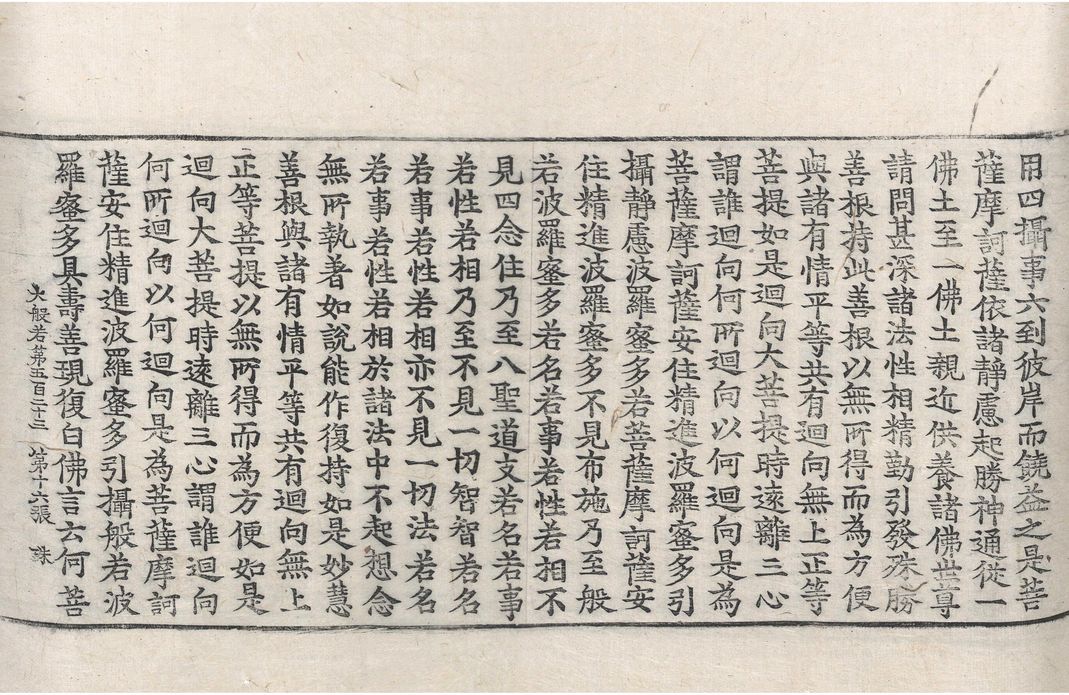 用四攝事六到彼岸而饒益之是菩
薩摩訶薩依諸靜慮起勝神通從一
佛土至一佛土親近供養諸佛世尊
請問甚深諸法性相精勤引發殊勝
善根持此善根以無所得而為方便
與諸有情平等共有迴向無上正等
菩提如是迴向大菩提時遠離三心
謂誰迴向何所迴向以何迴向是為
菩薩摩訶薩安住精進波羅蜜多引
攝靜慮波羅蜜多若菩薩摩訶薩安
住精進波羅蜜多不見布施乃至般
若波羅蜜多若名若事若性若相不
見四念住乃至八聖道支若名若事
若性若相乃至不見一切智智若名
若事若性若相亦不見一切法若名
若事若性若相於諸法中不起想念
無所執著如說能作復持如是妙慧
善根與諸有情平等共有迴向無上
正等菩提以無所得而為方便如是
迴向大菩提時遠離三心謂誰迴向
何所迴向以何迴向是為菩薩摩訶
薩安住精進波羅蜜多引攝般若波
羅蜜多具壽善現復白佛言云何菩
大般若第五百二十三 第十六張 珠